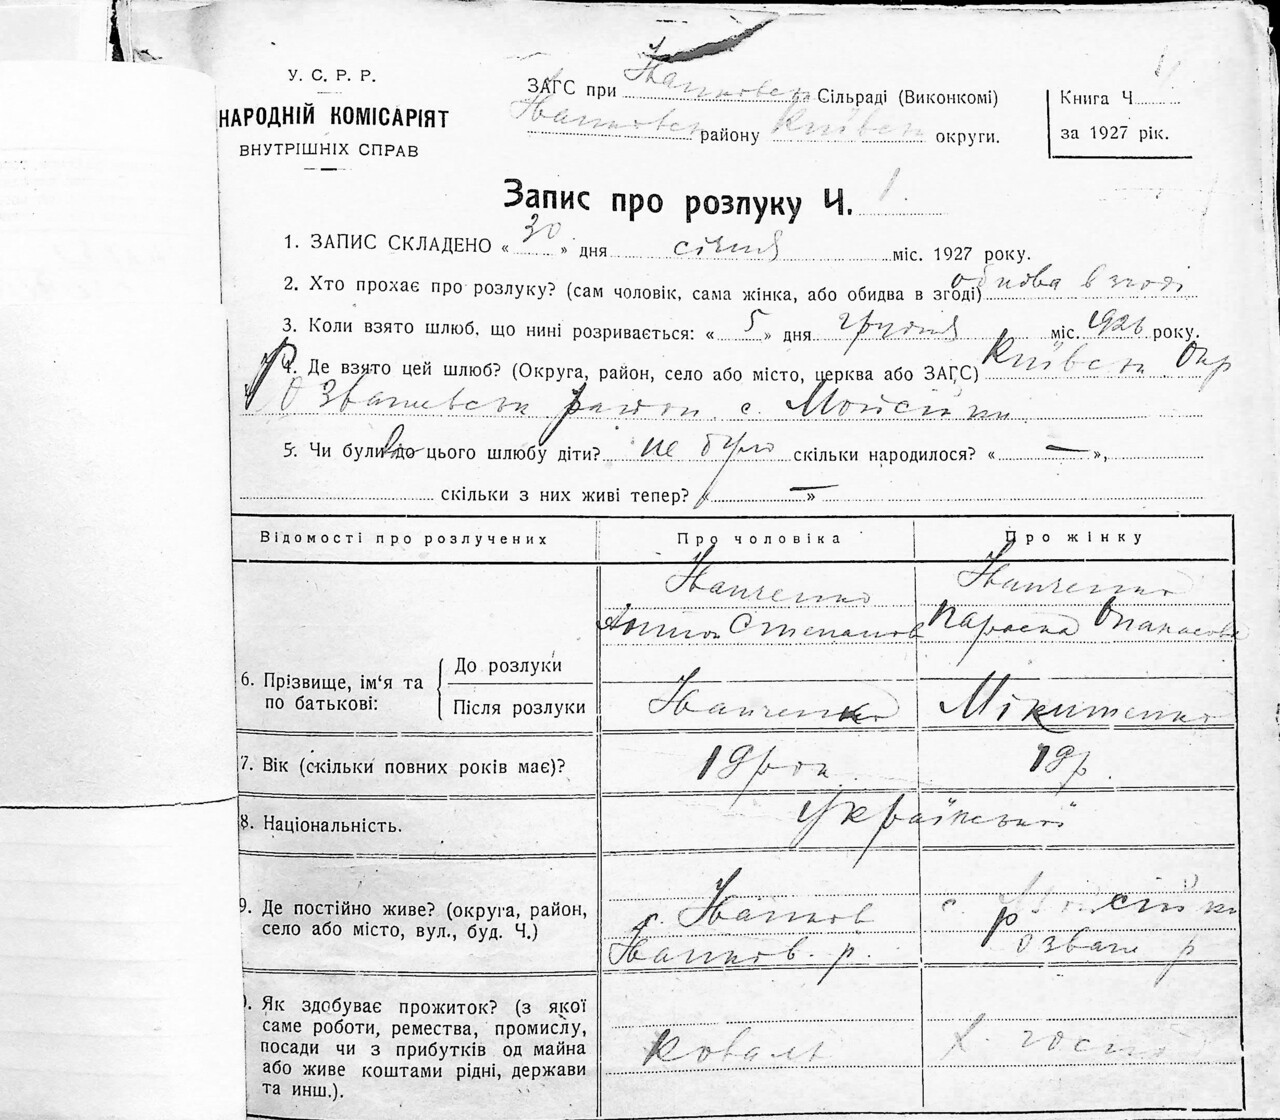 У. С. Р. Р.
НАРОДНІЙ КОМІСАРІЯТ
ВНУТРІШНІХ СПРАВ
ЗАГС при Іванковськ Сільраді (Виконкомі)
Іванковськ району Київськ округи.
Книга Ч.
за 1927 рік.
Запис про розлуку Ч. 1
1. ЗАПИС СКЛАДЕНО « 30 » дня січня міс. 1927 року.
2. Хто прохає про розлуку? (сам чоловік, сама жінка, або обидва в згоді) обидва в згоді
3. Коли взято шлюб, що нині розривається: « 5 » дня грудня міс. 1926 року.
4. Де взято цей шлюб? (Округа, район, село або місто, церква або ЗАГС) Київськ Окр
Розважевськ район с. Мойсійки
5. Чи були до цього шлюбу діти? не було скільки народилося? « — »,
скільки з них живі тепер? « — »
Відомості про розлучених
Про чоловіка
Про жінку
6. Прізвище, ім'я та по батькові:
До розлуки
Іванченко
Антон Степанов
Іванченко
Параска Опанасова
Після розлуки
Іванченко
Мікитенко
7. Вік (скільки повних років має)?
19 рок
19 р.
8. Національність.
Української
9. Де постійно живе? (округа, район,
село або місто, вул., буд. Ч.)
с. Іванков
Іванков. р.
с. Мойсійки
Розваж р
Як здобуває прожиток? (з якої
саме роботи, ремества, промислу,
посади чи з прибутків од майна
або живе коштами рідні, держави
та инш.).
Коваль
Х. госп